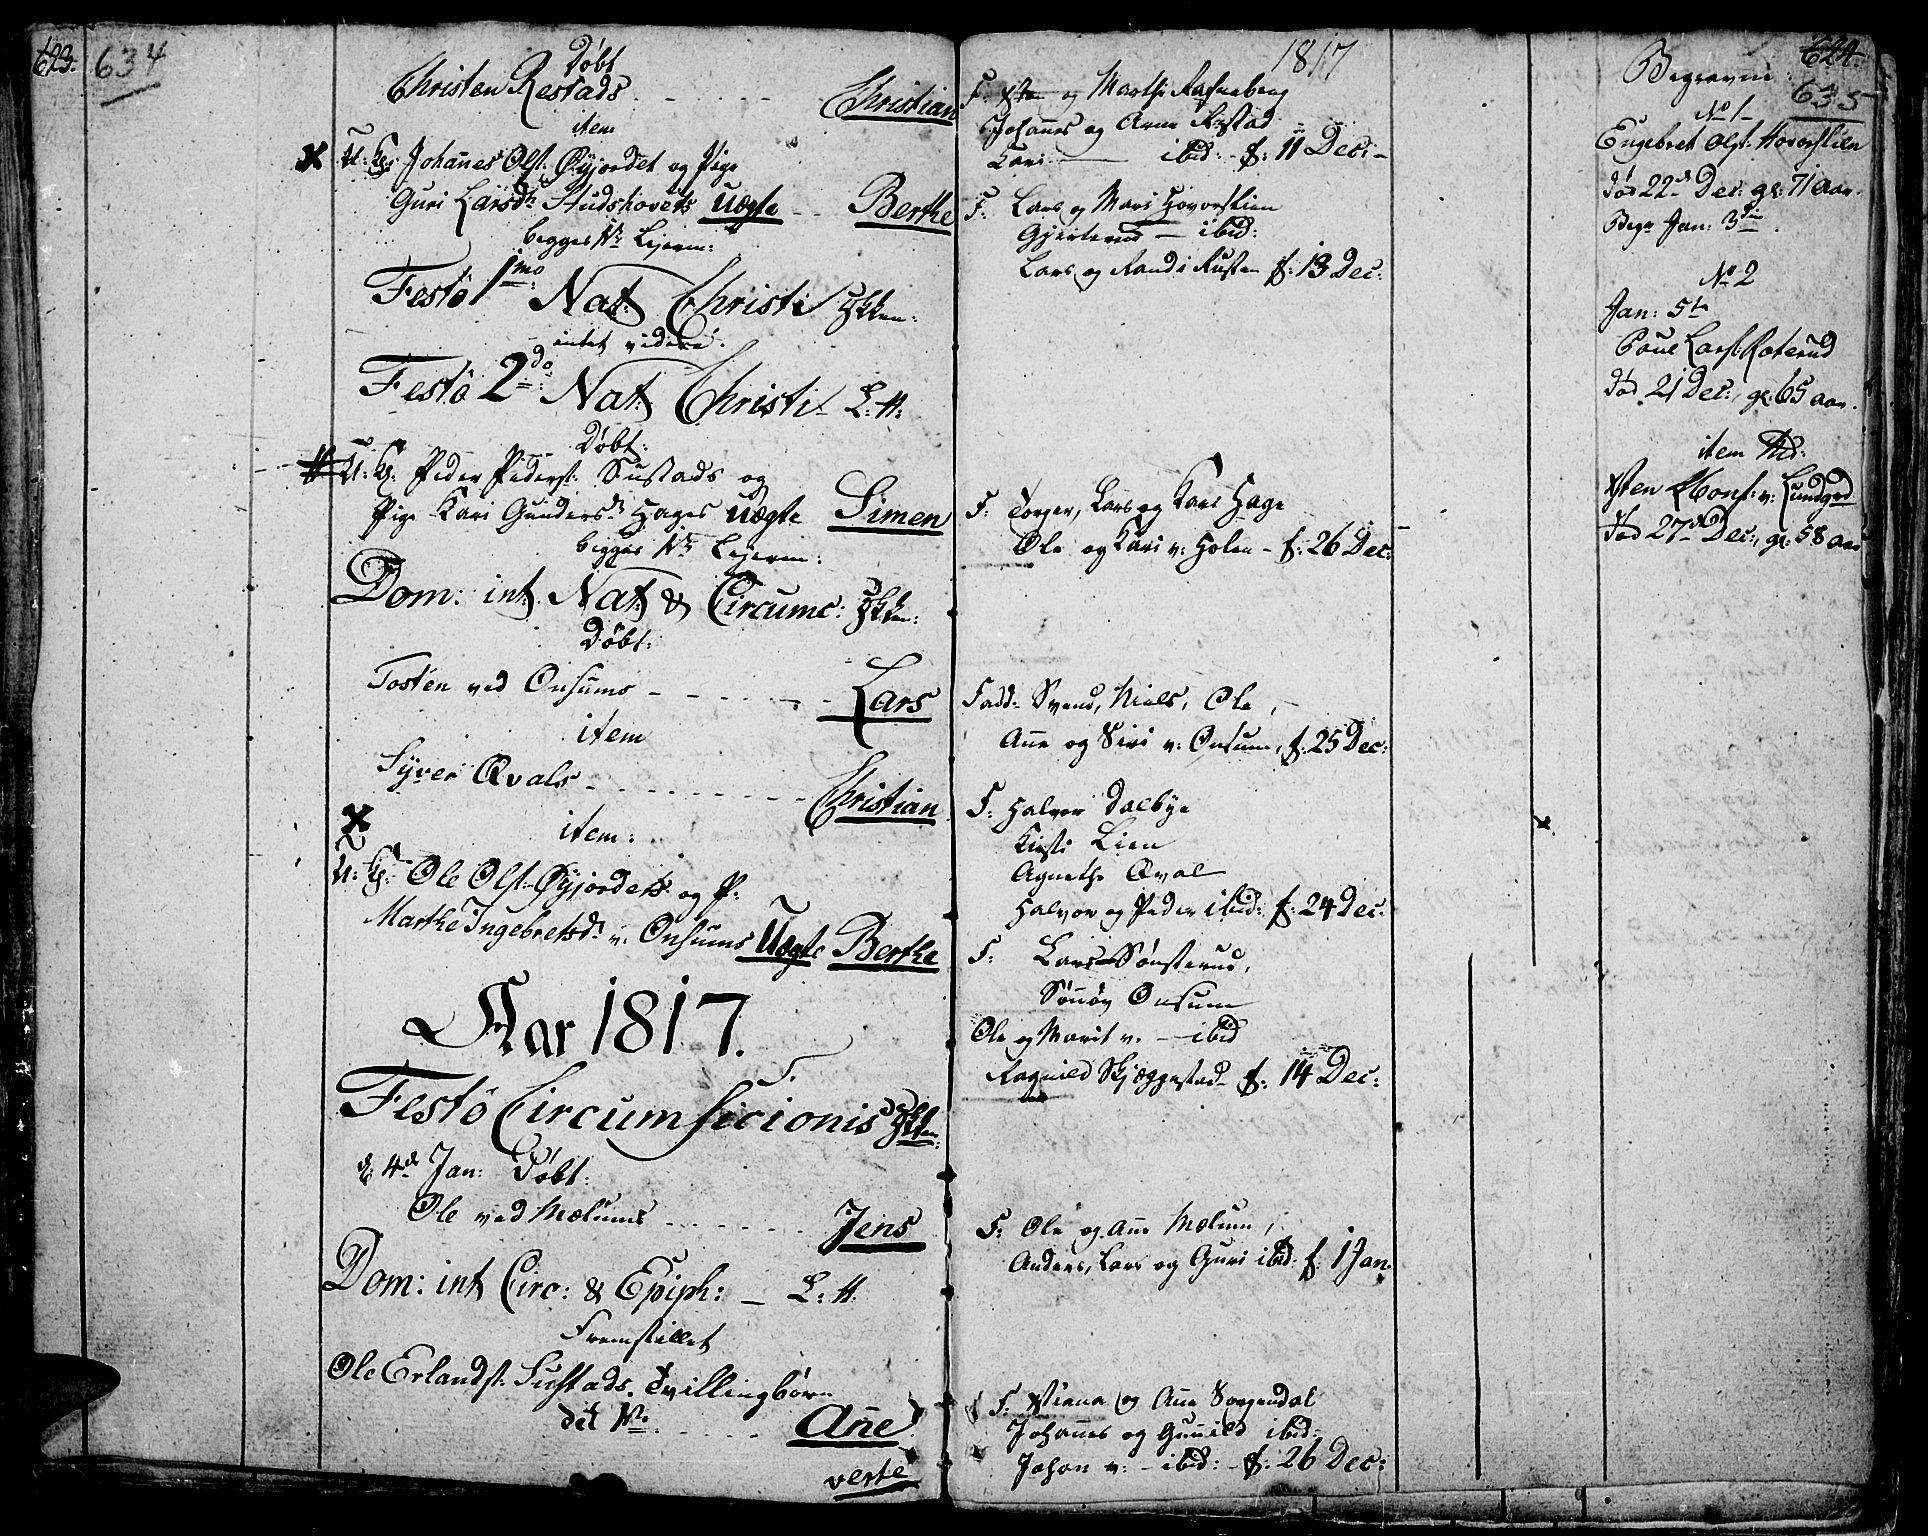 623.
634
Døbt
Christen Restads Christian
item
U: K: Johanes Olsᵗ: Øyjordet og Pige
Guri Larsdʳ Studshovets Uægte Berthe
begges 1ste Lejerm:
Festo 1mo: Nat: Christi
intet videre.
Festo 2do: Nat: Christi L: H:
Døbt:
U: K: Peder Pedersᵗ: Sustads og
Pige Kari Gundersdʳ Hages Uægte Simen
begges 1ste Lejerm:
Dom: int. Nat & Circumc:
Døbt:
Tosten ved Onsums Lars
item
Syver Qvals Christian
item:
U: K: Ole Olsᵗ: Øyjordets og P:
Marthe Ingebretsdʳ v. Onsums Uægte Berthe
Aar 1817.
Festo Circumsicionis
d: 4de Jan: Døbt:
Ole ved Mælums Jens
Dom: int Circ: & Epiph: L: H.
Fremstillet
Ole Erlandsᵗ: Sustads Tvillingbørn
det 1ste Añe
verte
1817
F. og Marthe
Johanes og Anne Restad
Kari ibid: f: 11 Dec:
F: Lars og Mari Hovorstien
ibid:
Lars og Randi Rusten f: 13 Dec:
F: Torger, Lars og Kari Hage
Ole og Kari v: Holen f: 26 Dec:
Fadd: Svend, Niels, Ole,
Añe og Siri v: Onsum, f: 25 Dec:
F: Halvor Dalbye
Kirsti Lien
Agnethe Qval
Halvor og Peder ibid: f: 24 Dec.
F: Lars Sønsterud,
Onsum
Ole og Marit v. ibid
Ragnild Skjæggestad f: 14 Dec:
F: Ole og Añe Mælum,
Anders, Lars og Guri ibid: f: 1 Jan.
F: og Añe Sorgendal
Johañes og Guñild ibid:
Johan v: ibid: f: 26 Dec:
624.
635
Begravne:
No 1
Engebret Olsᵗ: Hovorstien
død 22de Dec: gl: 71 aar.
Begr Jan: 3die.
No 2
Jan: 5te
Poul Larsᵗ: Roterud
død 21 Dec:, gl: 65 aar.
item
v: Lundgrd
død 27de Dec:, gl: 58 aar